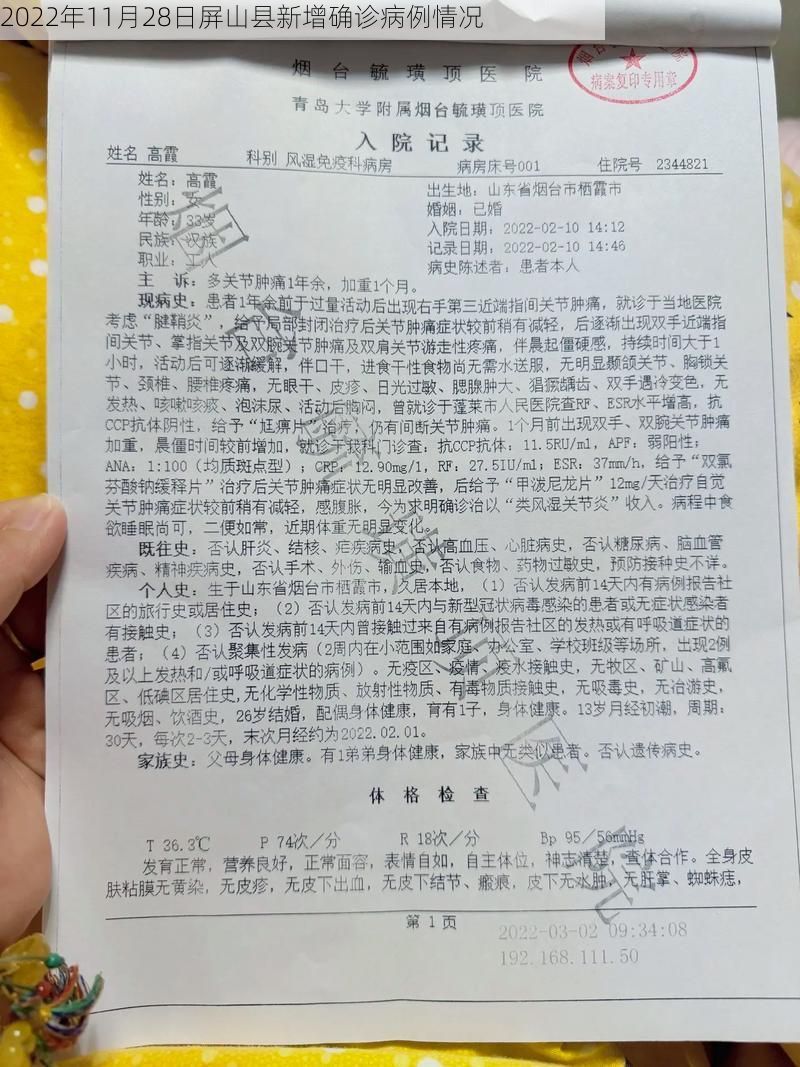 2022年11月28日屏山县新增确诊病例情况
病案复印专用章
烟台毓璜顶医院
青岛大学附属烟台毓璜顶医院
入院记录
姓名 高霞 科别 风湿免疫科病房 病房床号001 住院号 2344821
姓名：高霞 出生地：山东省烟台市栖霞市
性别：女 婚姻：已婚
年龄：33岁 入院日期：2022-02-10 14:12
民族：汉族 记录日期：2022-02-10 14:46
职业：工人 病史陈述者：患者本人
主 诉：多关节肿痛1年余，加重1个月。
现病史：患者1年余前于过量活动后出现右手第三近端指间关节肿痛，就诊于当地医院
考虑“腱鞘炎”，给予局部封闭治疗后关节肿痛症状较前稍有减轻，后逐渐出现双手近端指
间关节、掌指关节及双腕关节肿痛及双肩关节游走性疼痛，伴晨起僵硬感，持续时间大于1
小时，活动后可逐渐缓解，伴口干，进食干性食物尚无需水送服，无明显颞颌关节、胸锁关
节、颈椎、腰椎疼痛，无眼干、皮疹、日光过敏、腮腺肿大、猖獗龋齿、双手遇冷变色，无
发热、咳嗽咳痰、泡沫尿、活动后胸闷，曾就诊于蓬莱市人民医院查RF、ESR水平增高，抗
CCP抗体阴性，给予“尪痹片”治疗，仍有间断关节肿痛。1个月前出现双手、双腕关节肿痛
加重，晨僵时间较前增加，就诊于我科门诊查：抗CCP抗体：11.5RU/ml，APF：弱阳性；
ANA：1:100（均质斑点型）；CRP：12.90mg/l，RF：27.5IU/ml；ESR：37mm/h，给予“双氯
芬酸钠缓释片”治疗后关节肿痛症状无明显改善，后给予“甲泼尼龙片”12mg/天治疗自觉
关节肿痛症状较前稍有减轻，感腹胀，今为求明确诊治以“类风湿关节炎”收入。病程中食
欲睡眠尚可，二便如常，近期体重无明显变化。
既往史：否认肝炎、结核、疟疾病史，否认高血压、心脏病史，否认糖尿病、脑血管
疾病、精神疾病史，否认手术、外伤、输血史，否认食物、药物过敏史，预防接种史不详。
个人史：生于山东省烟台市栖霞市，久居本地，（1）否认发病前14天内有病例报告社
区的旅行史或居住史；（2）否认发病前14天内与新型冠状病毒感染的患者或无症状感染者
有接触史；（3）否认发病前14天内曾接触过来自有病例报告社区的发热或有呼吸道症状的
患者；（4）否认聚集性发病（2周内在小范围如家庭、办公室、学校班级等场所，出现2例
及以上发热和/或呼吸道症状的病例）。无疫区、疫情、疫水接触史，无牧区、矿山、高氟
区、低碘区居住史,无化学性物质、放射性物质、有毒物质接触史，无吸毒史，无冶游史，
无吸烟、饮酒史，26岁结婚，配偶身体健康，育有1子，身体健康。13岁月经初潮，周期：
30天，每次2-3天，末次月经约为2022.02.01。
家族史：父母身体健康。有1弟弟身体健康，家族中无类似患者。否认遗传病史。
体格检查
T 36.3℃ P 74次／分 R 18次／分 Bp 95／56mmHg
发育正常，营养良好，正常面容，表情自如，自主体位，神志清楚，查体合作。全身皮
肤粘膜无黄染，无皮疹，无皮下出血，无皮下结节、瘢痕，皮下无水肿，无肝掌、蜘蛛痣，
第 1 页
2022-03-02 09:34:08
192.168.111.50